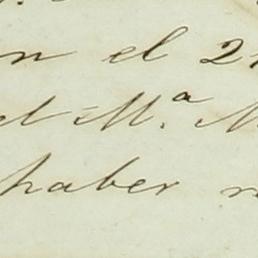 en el 2
el M.ª M
haber